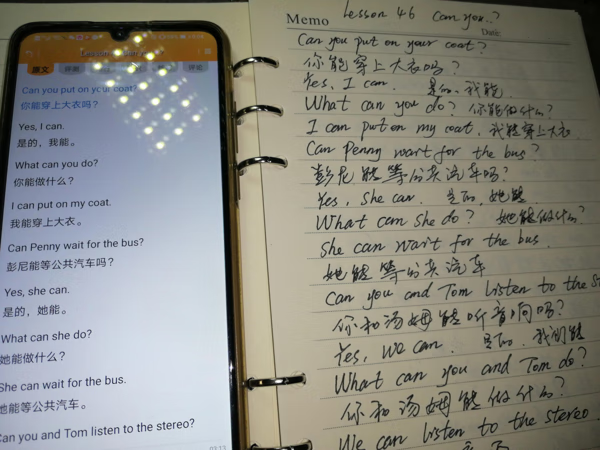 原文
Can you put on your coat?
你能穿上大衣吗？
Yes, I can.
是的，我能。
What can you do?
你能做什么？
I can put on my coat.
我能穿上大衣。
Can Penny wait for the bus?
彭尼能等公共汽车吗？
Yes, she can.
是的，她能。
What can she do?
她能做什么？
She can wait for the bus.
她能等公共汽车。
Can you and Tom listen to the stereo?
Memo Lesson 46 Can you..?
Date
Can you put on your coat?
你能穿上大衣吗？
Yes, I can. 是的，我能
What can you do? 你能做什么？
I can put on my coat. 我能穿上大衣.
Can Penny wait for the bus?
彭尼能等公共汽车吗？
Yes, she can. 是的，她能
What can she do? 她能做什么？
She can wait for the bus.
她能等公共汽车
Can you and Tom listen to the
你和汤姆能听音响吗？
Yes, we can. 是的，我们能
What can you and Tom do?
你和汤姆能做什么？
We can listen to the stereo